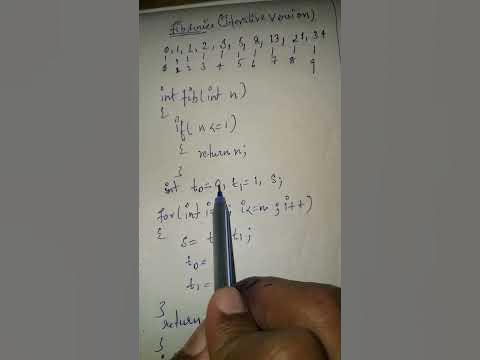 Fibonacci (Iterative version)
0, 1, 1, 2, 3, 5, 8, 13, 21, 34
0 1 2 3 4 5 6 7 8 9
int fib(int n)
{
if( n<=1)
{ return n;
}
int t0=0, t1=1, s;
for(int i= i<=n ; i++)
{ s= t1;
t0=
t1=
}
return
}